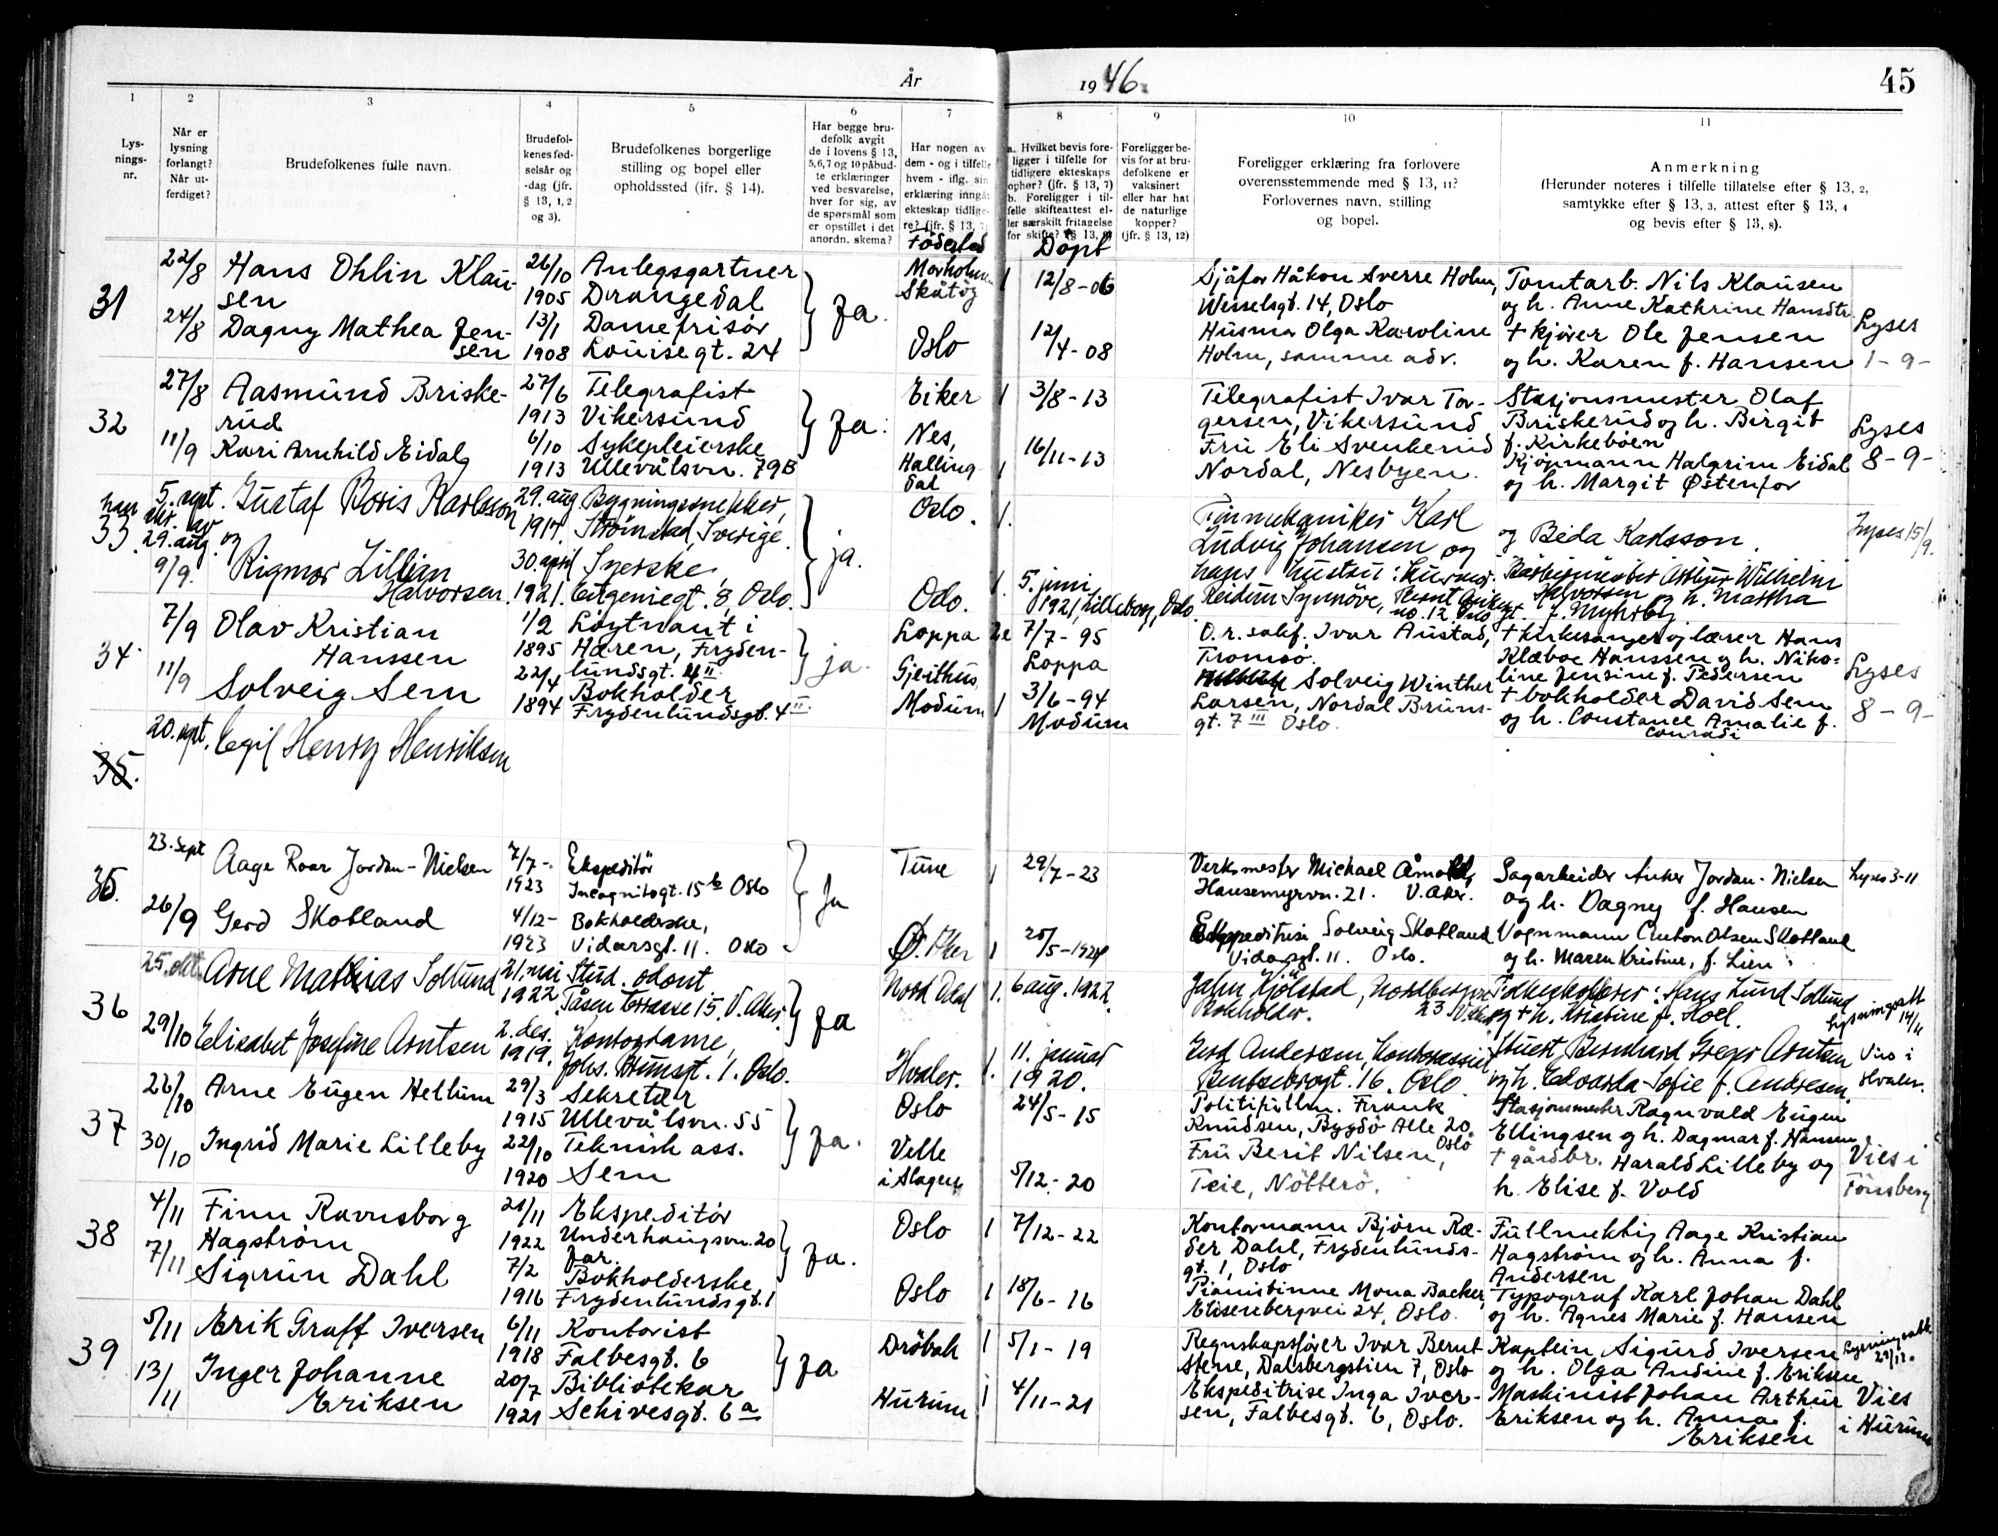 År 1946. 45
1 2 3 4 5 6 7 8 9 10 11
Lys-
nings-
nr.
Når er
lysning
forlangt?
Når ut-
ferdiget?
Brudefolkenes fulle navn.
Brudefol-
kenes fød-
selsår og
-dag (jfr.
§ 13, 1, 2
og 3).
Brudefolkenes borgerlige
stilling og bopel eller
opholdssted (ifr. § 14).
Har begge bru-
defolk avgit
de i lovens § 13,
5, 6, 7 og 10 påbud-
te erklæringer
ved besvarelse,
hver for sig, av
de spørsmål som
er opstillet i det
anordn. skema?
Har nogen av
dem - og i tilfelle
hvem - iflg. sin
erklæring inngåt
ekteskap tidlige-
re? (jfr. § 13, 7)
Fødested
a. Hvilket bevis fore-
ligger i tilfelle for
tidligere ekteskaps
ophør? (jfr. § 13, 7)
b. Foreligger i til-
felle skifteattest el-
ler særskilt fritagelse
for skifte?
Døpt
Foreligger be-
vis for at bru-
defolkene er
vaksinert
eller har hat
de naturlige
kopper?
(jfr. § 13, 12)
Foreligger erklæring fra forlovere
overensstemmende med § 13, 11?
Forlovernes navn, stilling
og bopel.
Anmerkning
(Herunder noteres i tilfelle tillatelse efter § 13, 2,
samtykke efter § 13, 3, attest efter § 13, 4
og bevis efter § 13, 8).
31
22/8
24/8
Hans Ohlin Klau-
sen
Dagny Mathea Jen-
sen
26/10
1905
13/1
1908
Anlegsgartner
Drangedal
Damefrisør
Louisegt. 24
Ja.
Skåtøy
Oslo
1
12/8-06
12/4-08
Sjåfør Håkon Sverre Holm,
Wesselsgt. 14, Oslo
Husmor Olga Karoline
Holm, samme adr.
Tomtarb. Nils Klausen
og h. Anne Kathrine Hansdtr.
+ kjører Ole Jensen
og h. Karen f. Hansen
Lyses
1-9-
32
27/8
11/9
Aasmund Briske-
rud
Kari Arnhild Eidal
27/6
1913
6/10
1913
Telegrafist
Vikersund
Sykepleierske
Ullevålsvn. 79B
Ja.
Eiker
Nes,
Halling-
dal
1
1
3/8-13
16/11-13
Telegrafist Ivar Tor-
gersen, Vikersund
Fru Eli Svenkerud
Nordal, Nesbyen.
Stasjonsmester Olaf
Briskerud og h. Birgit
f. Kirkebøen
Kjøpmann Halgrim Eidal
og h. Margit Østenfor
Lyses
8-9-
33
5. sept.
29. aug.
9/9.
Gustaf Boris Karlsson
og
Rigmor Lillian
Halvorsen
29. aug.
30. april
1921.
Bygningssnekker,
Strömstad, Sverige.
Syerske,
8, Oslo.
ja.
Oslo.
Oslo.
1.
1.
5. juni
1921, Lilleborg, Oslo
Finmekaniker Karl
Ludvig Johansen og
hans hustru: husmor
Reidun Synnøve,
no. 12 Oslo
og Beda Karlsson.
Arthur Wilhelm
Halvorsen og h. Martha
Lyses 15/9.
34
7/9
11/9
Olav Kristian
Hanssen
Solveig Sem
1/2
1895
22/4
1894
Løytnant i
Hæren, Fryden-
lundsgt. 4 II
Bokholder
Frydenlundsgt. 4 II
ja.
Loppa
Gjeithus
Modum
1
7/7-95
Loppa
3/6-94
Modum
O.r.sakf. Ivar Austad,
Tromsø.
Solveig Winther
Larsen, Nordal Bruns-
gt. 7 III Oslo.
+ kirkesanger og lærer Hans
Klæboe Hanssen og h. Niko-
line Jensine f. Pedersen
+ bokholder David Sem
og h. Constance Amalie f.
Conradi
Lyses
8-9-
35.
20. sept.
Egil Henry Henriksen
35.
23. Sept
26/9
Aage Roar Jordan-Nielsen
Gerd Skotland
7/7-
1923
4/12-
1923
Ekspeditør
Incognitogt. 15 b Oslo
Bokholderske,
Vidarsgt. 11. Oslo
Ja
Tune
Ø. Aker
1
1
29/7-23
Verkmester Michael
Hansemyrvn. 21. V. Aker.
Solveig Skotland
Vidarsgt. 11. Oslo.
Sagarbeider Anker Jordan-Nielsen
og h. Dagny f. Hansen
Vognmann Anton Olsen Skotland
og h. Maren Kristine, f. Lien
Lyses 3-11
36
25. okt.
29/10
Arne Mathias Solund
Elisabet Josefine Arntsen
21. mai
1922
2. des.
1919.
Stud. odont.
Tåsen Terrasse 15. V. Aker.
Kontordame,
1. Oslo.
Ja
Hvaler.
1.
1.
6 aug. 1922
11. januar
1920.
Bokholder.
Gerd Andersen,
16. Oslo
Hans Lund Solund
og + h. Kristine f. Hoel.
Bernhard Greger Arntsen
og h. Edvarda Sofie f. Andresen.
14/11
Vies i
Hvaler.
37
26/10
30/10
Arne Eugen Hellum
Ingrid Marie Lilleby
29/3
1915
22/10
1920
Sekretær
Ullevålsvn. 55
Teknisk ass.
Sem
Ja.
Oslo
Velle
i Slagen
24/5-15
5/12-20
Politifullm. Frank
Knudsen, Bygdø Alle 20,
Oslo
Fru Berit Nilsen,
Teie, Nøtterø.
Stasjonsmester Ragnvald Eugen
Ellingsen og h. Dagmar f. Hansen
+ gårdbr. Harald Lilleby og
h. Elise f. Vold
Vies i
Tønsberg
38
4/11
7/11
Finn Ravnsborg
Hagstrøm
Sigrun Dahl
21/11
1922
7/2
1916
Ekspeditør
Underhaugsvn. 20
Bokholderske
Frydenlundsgt. 1
Ja.
Oslo
Oslo
1
1
7/12-22
18/6-16
Kontormann Bjørn Ræ-
der Dahl, Frydenlunds-
gt. 1, Oslo
Pianistinne Mona Backer,
Elisenbergvei 24, Oslo.
Fullmektig Aage Kristian
Hagstrøm og h. Anna f.
Andersen
Typograf Karl Johan Dahl
og h. Agnes Marie f. Hansen
39
5/11
13/11
Erik Graff Iversen
Inger Johanne
Eriksen
6/11
1918
20/7
1921
Kontorist
Falbesgt. 6
Bibliotekar
Schivesgt. 6 a
Ja
Drøbak
Hurum
1
1
5/1-19
4/11-21
Regnskapsfører Ivar Bernt
Stene, Dalsbergstien 7, Oslo
Ekspeditrise Inga Iver-
sen, Falbesgt. 6, Oslo.
Kaptein Sigurd Iversen
og h. Olga Andine f. Eriksen
Maskinist Johan Arthur
Eriksen og h. Anna f.
Eriksen
Vies
i Hurum